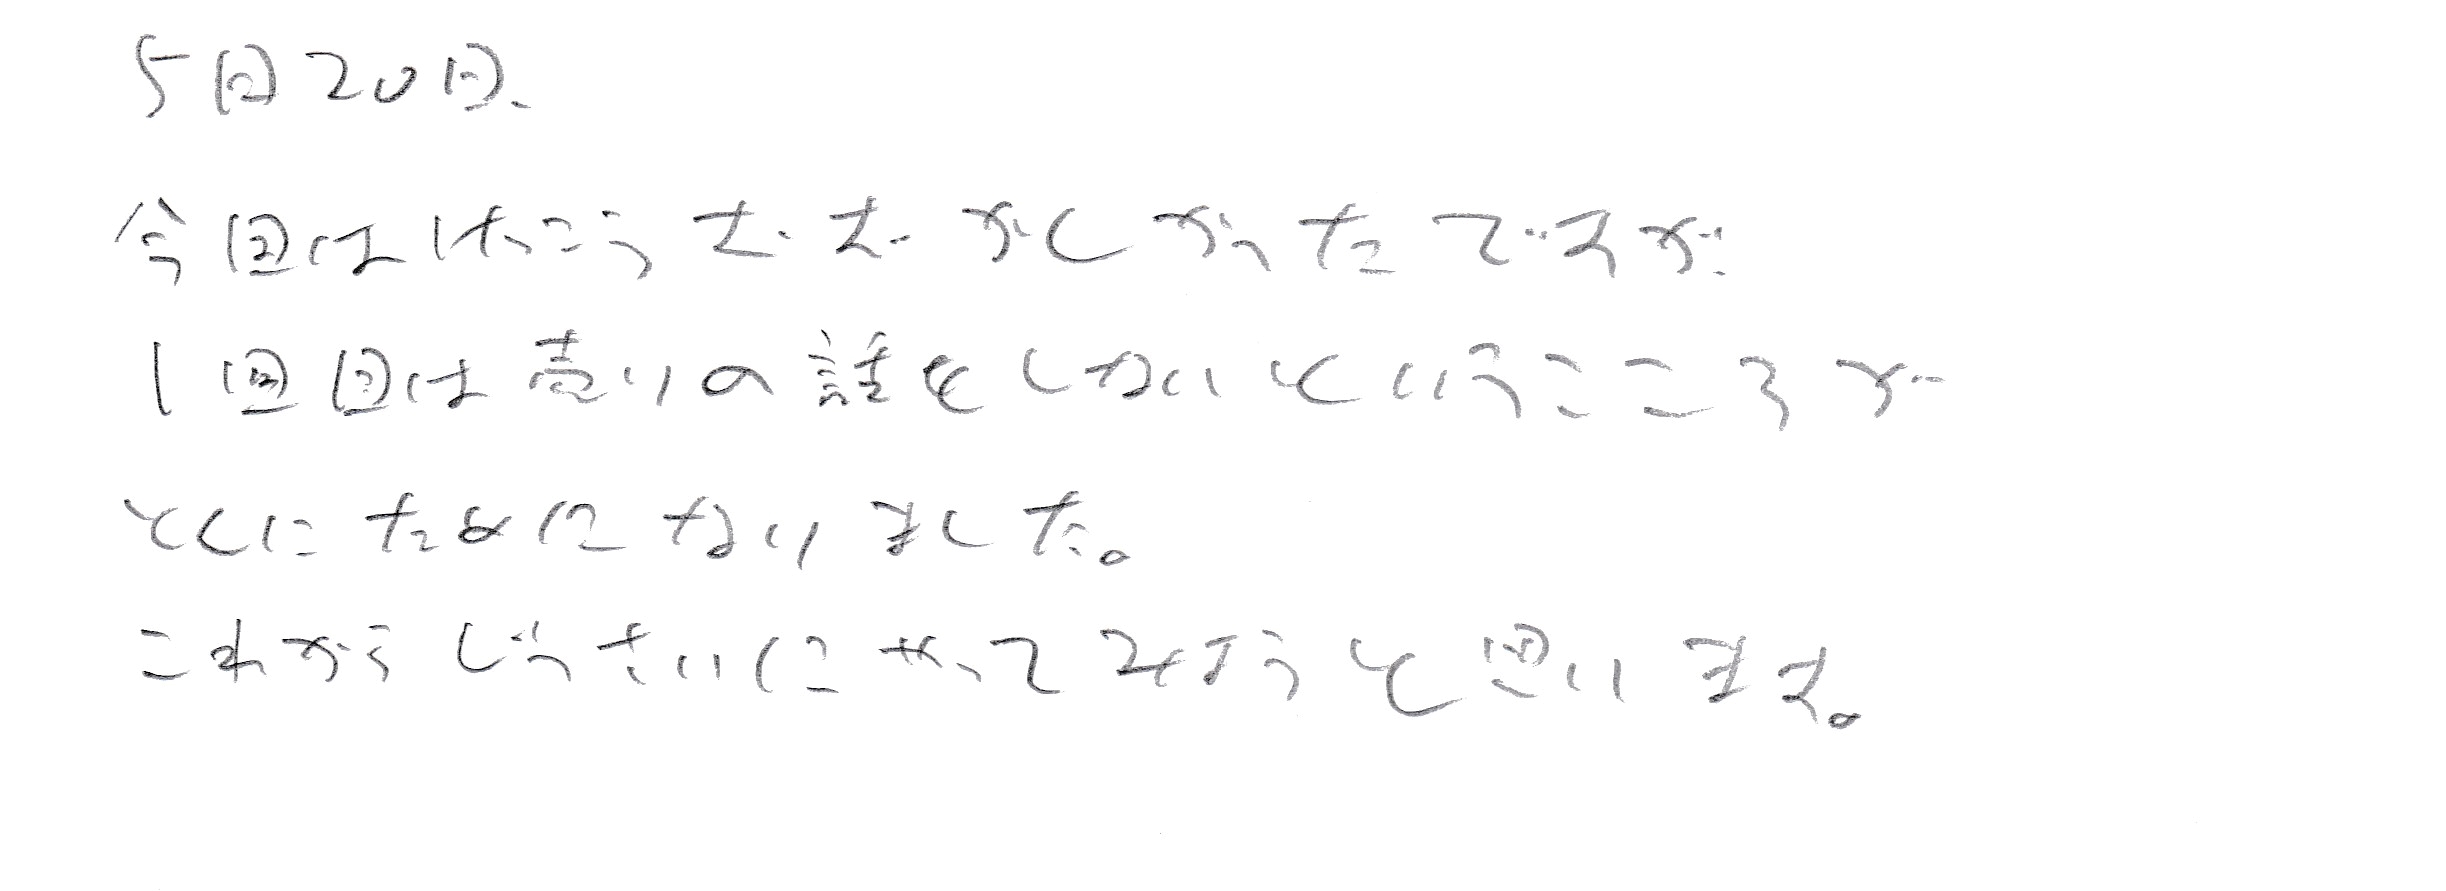 5回20日、
今回はけっこうむずかしかったですが
1回目は売りの話をしないというところが
とくにためになりました。
これからじっさいにやってみようと思います。